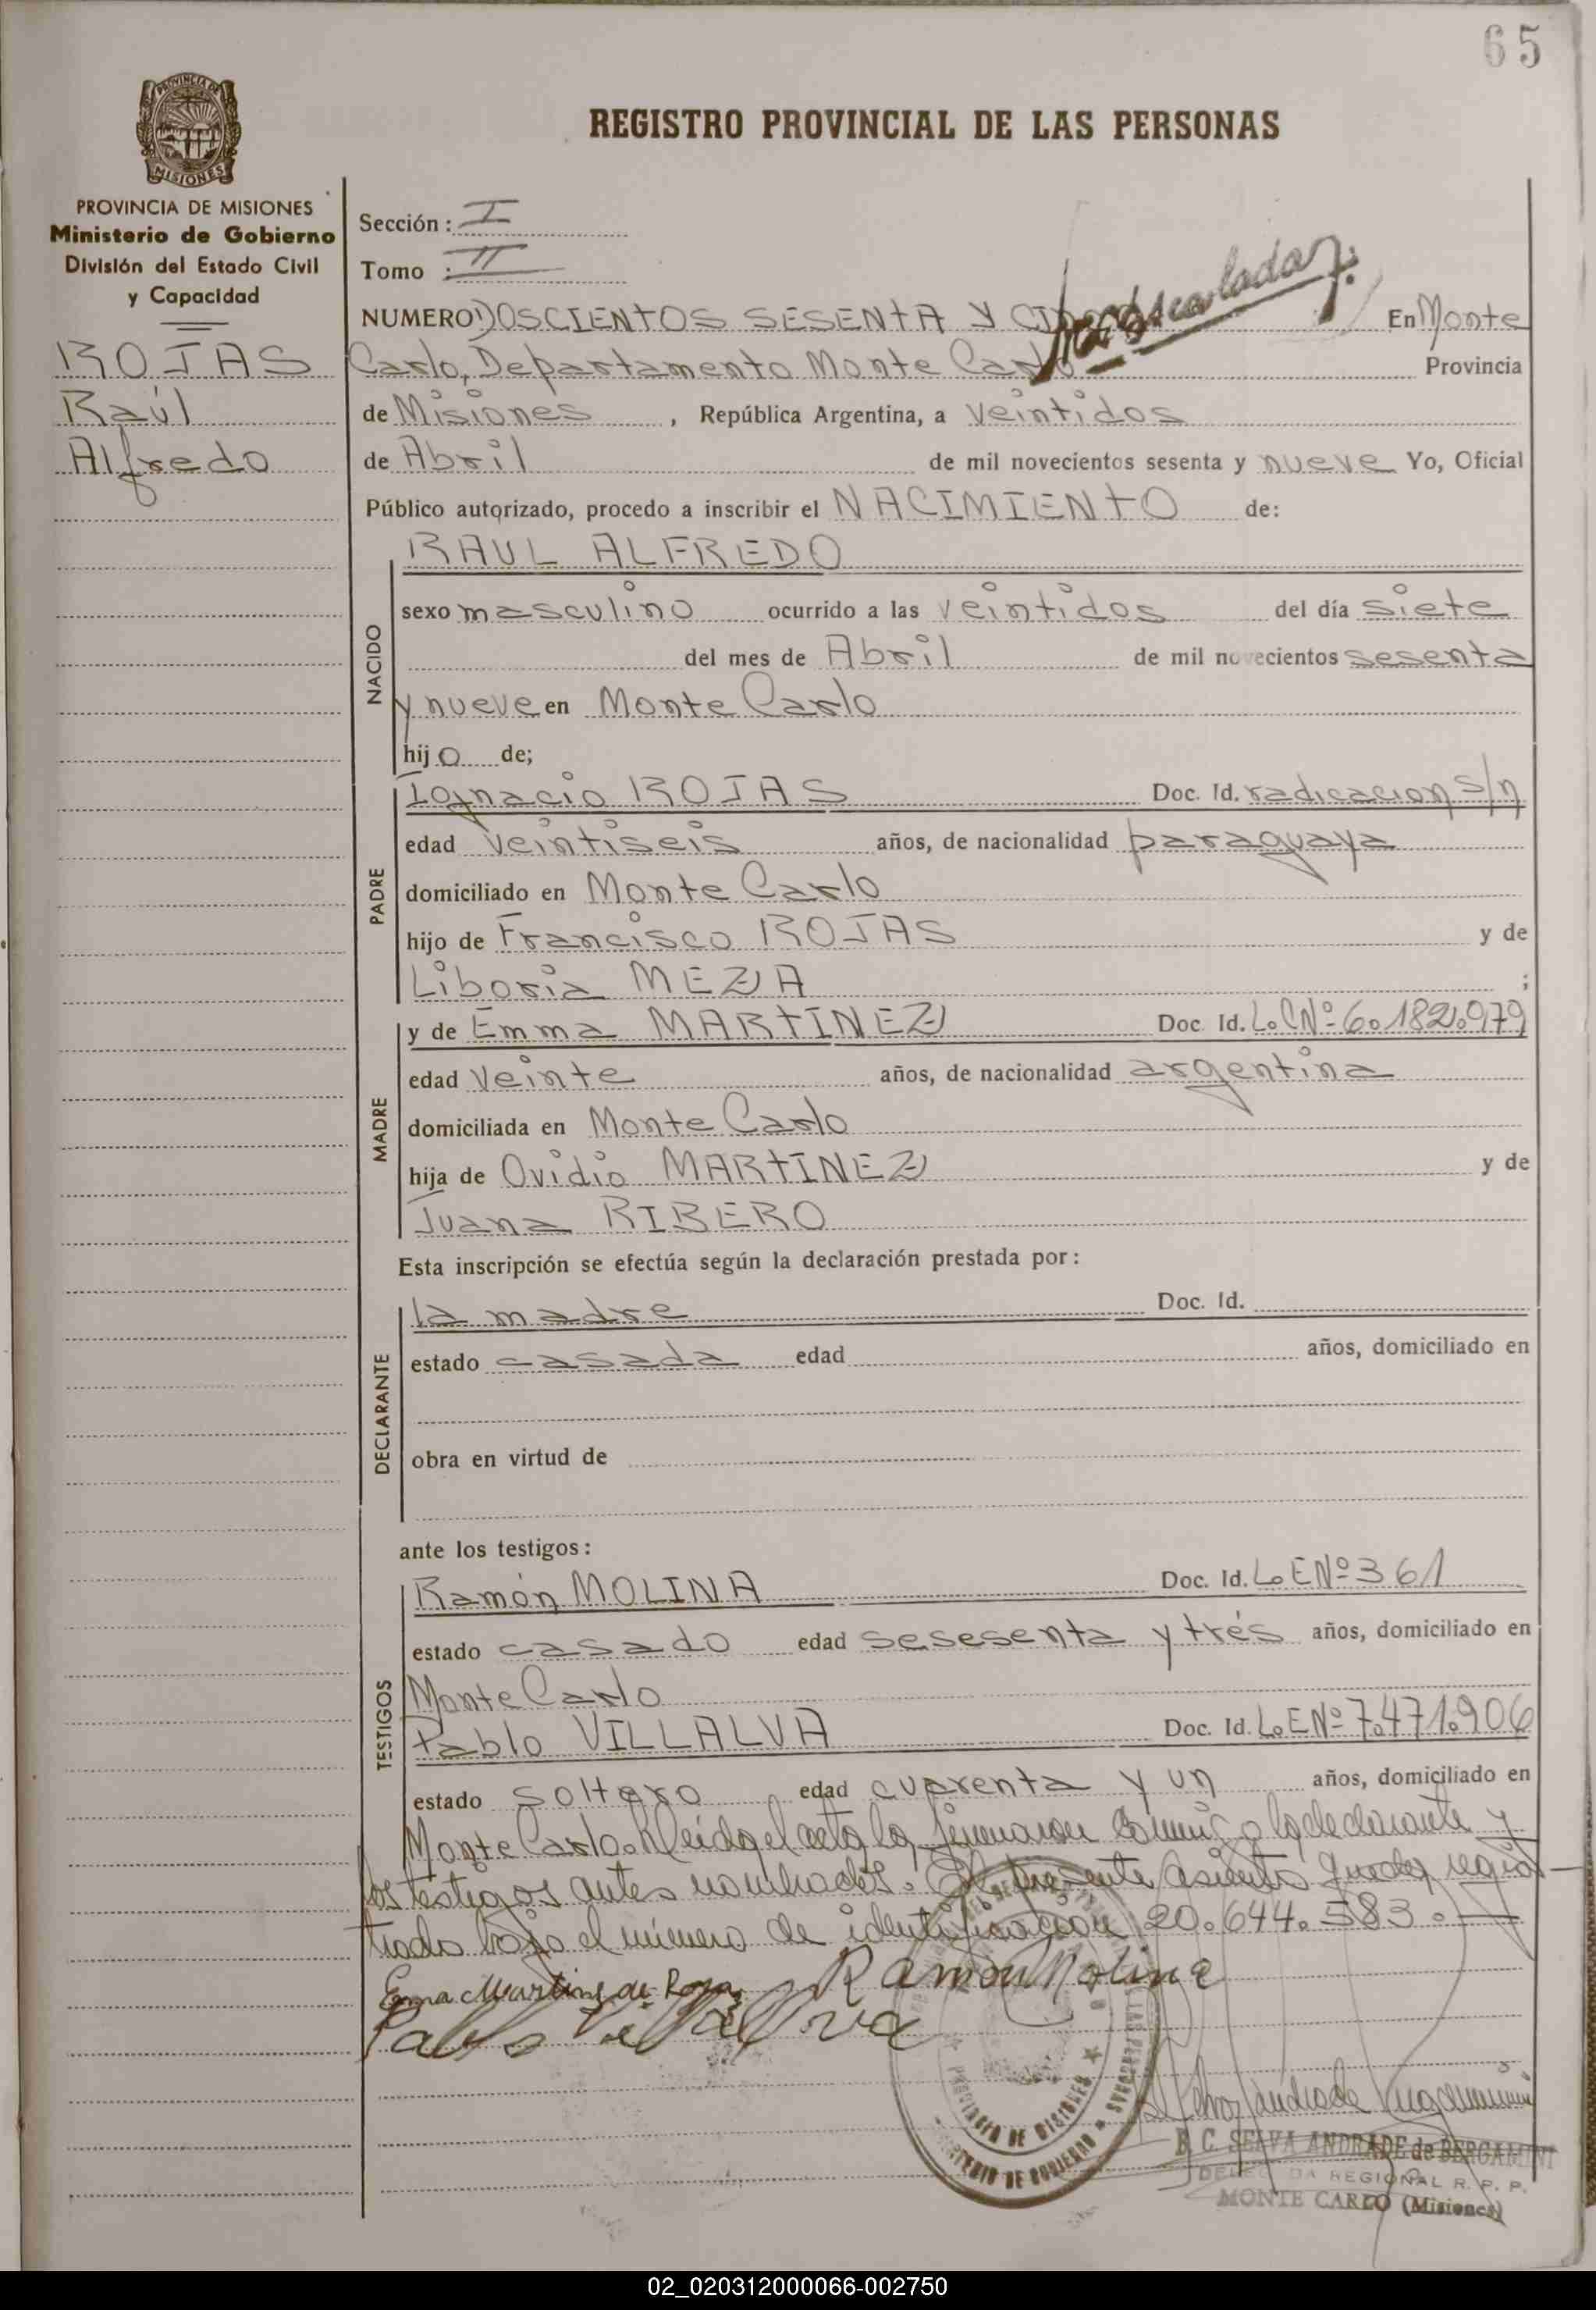 65
PROVINCIA DE
MISIONES
REGISTRO PROVINCIAL DE LAS PERSONAS
PROVINCIA DE MISIONES
Ministerio de Gobierno
División del Estado Civil
y Capacidad
ROJAS
Raúl
Alfredo
Sección: I
Tomo : II
NUMERO DOSCIENTOS SESENTA Y En Monte
Carlo, Departamento Monte Carlo Provincia
de Misiones, República Argentina, a veintidos
de Abril de mil novecientos sesenta y nueve Yo, Oficial
Público autorizado, procedo a inscribir el NACIMIENTO de:
RAUL ALFREDO
NACIDO
sexo masculino ocurrido a las veintidos del día siete
del mes de Abril de mil novecientos sesenta
y nueve en Monte Carlo
hijo de;
PADRE
Ignacio ROJAS Doc. Id. radicacion s/n
edad veintiseis años, de nacionalidad paraguaya
domiciliado en Monte Carlo
hijo de Francisco ROJAS y de
Liboria MEZA ;
MADRE
y de Emma MARTINEZ Doc. Id. L.C Nº 6.182.979
edad veinte años, de nacionalidad argentina
domiciliada en Monte Carlo
hija de Ovidio MARTINEZ y de
Juana RIBERO
Esta inscripción se efectúa según la declaración prestada por:
DECLARANTE
la madre Doc. Id.
estado casada edad años, domiciliado en
obra en virtud de
ante los testigos:
TESTIGOS
Ramón MOLINA Doc. Id. L.E Nº 361
estado casado edad sesesenta y trés años, domiciliado en
Monte Carlo
Pablo VILLALVA Doc. Id. L.E Nº 7.471.906
estado soltero edad cuarenta y un años, domiciliado en
Monte Carlo. Leida el acta la firmaron conmigo la declarante y
los testigos antes nombrados. El presente asiento queda regis-
trado bajo el número de identificacion 20.644.583.
Emma Martinez de Rojas Ramon Molina
Pablo Villalva
PROVINCIA DE MISIONES
MINISTERIO DE GOBIERNO
E. C. SELVA ANDRADE de BERGAMINI
DELEGADA REGIONAL R. P. P.
MONTE CARLO (Misiones)
02_020312000066-002750